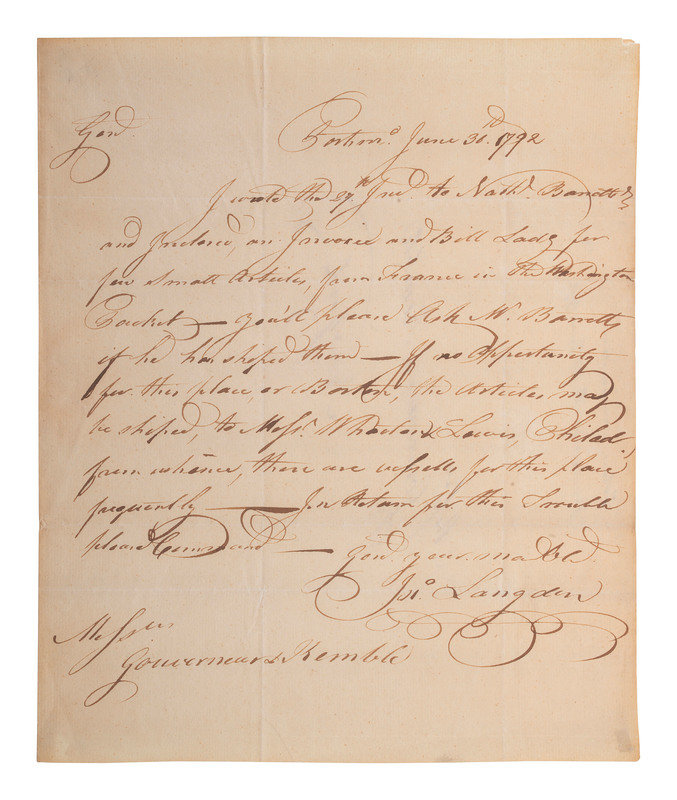 Gent.
Portsmo. June 30th 1792
I wrote the 27th Inst. to Nathl. Barrett Esqr
and Inclosed, an Invoice and Bill Ladg for
few Small Articles, from France in the Washington
Packet — you'll please Ask Mr. Barrett,
if he has shiped them — If no Oppertunity
for this place, or Boston, the Articles may
be shiped, to Messrs. Wharton & Lewis Philad,
from whence, there are vessells for this place
frequently — In Return for this Trouble
please Command —
Gent. your
Jno. Langdon
Messrs
Gouverneur & Kemble